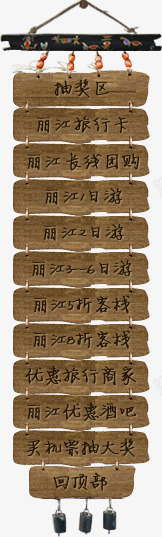 抽奖区
丽江旅行卡
丽江长线团购
丽江1日游
丽江2日游
丽江3-6日游
丽江5折客栈
丽江8折客栈
优惠旅行商家
丽江优惠酒吧
买机票抽大奖
回顶部